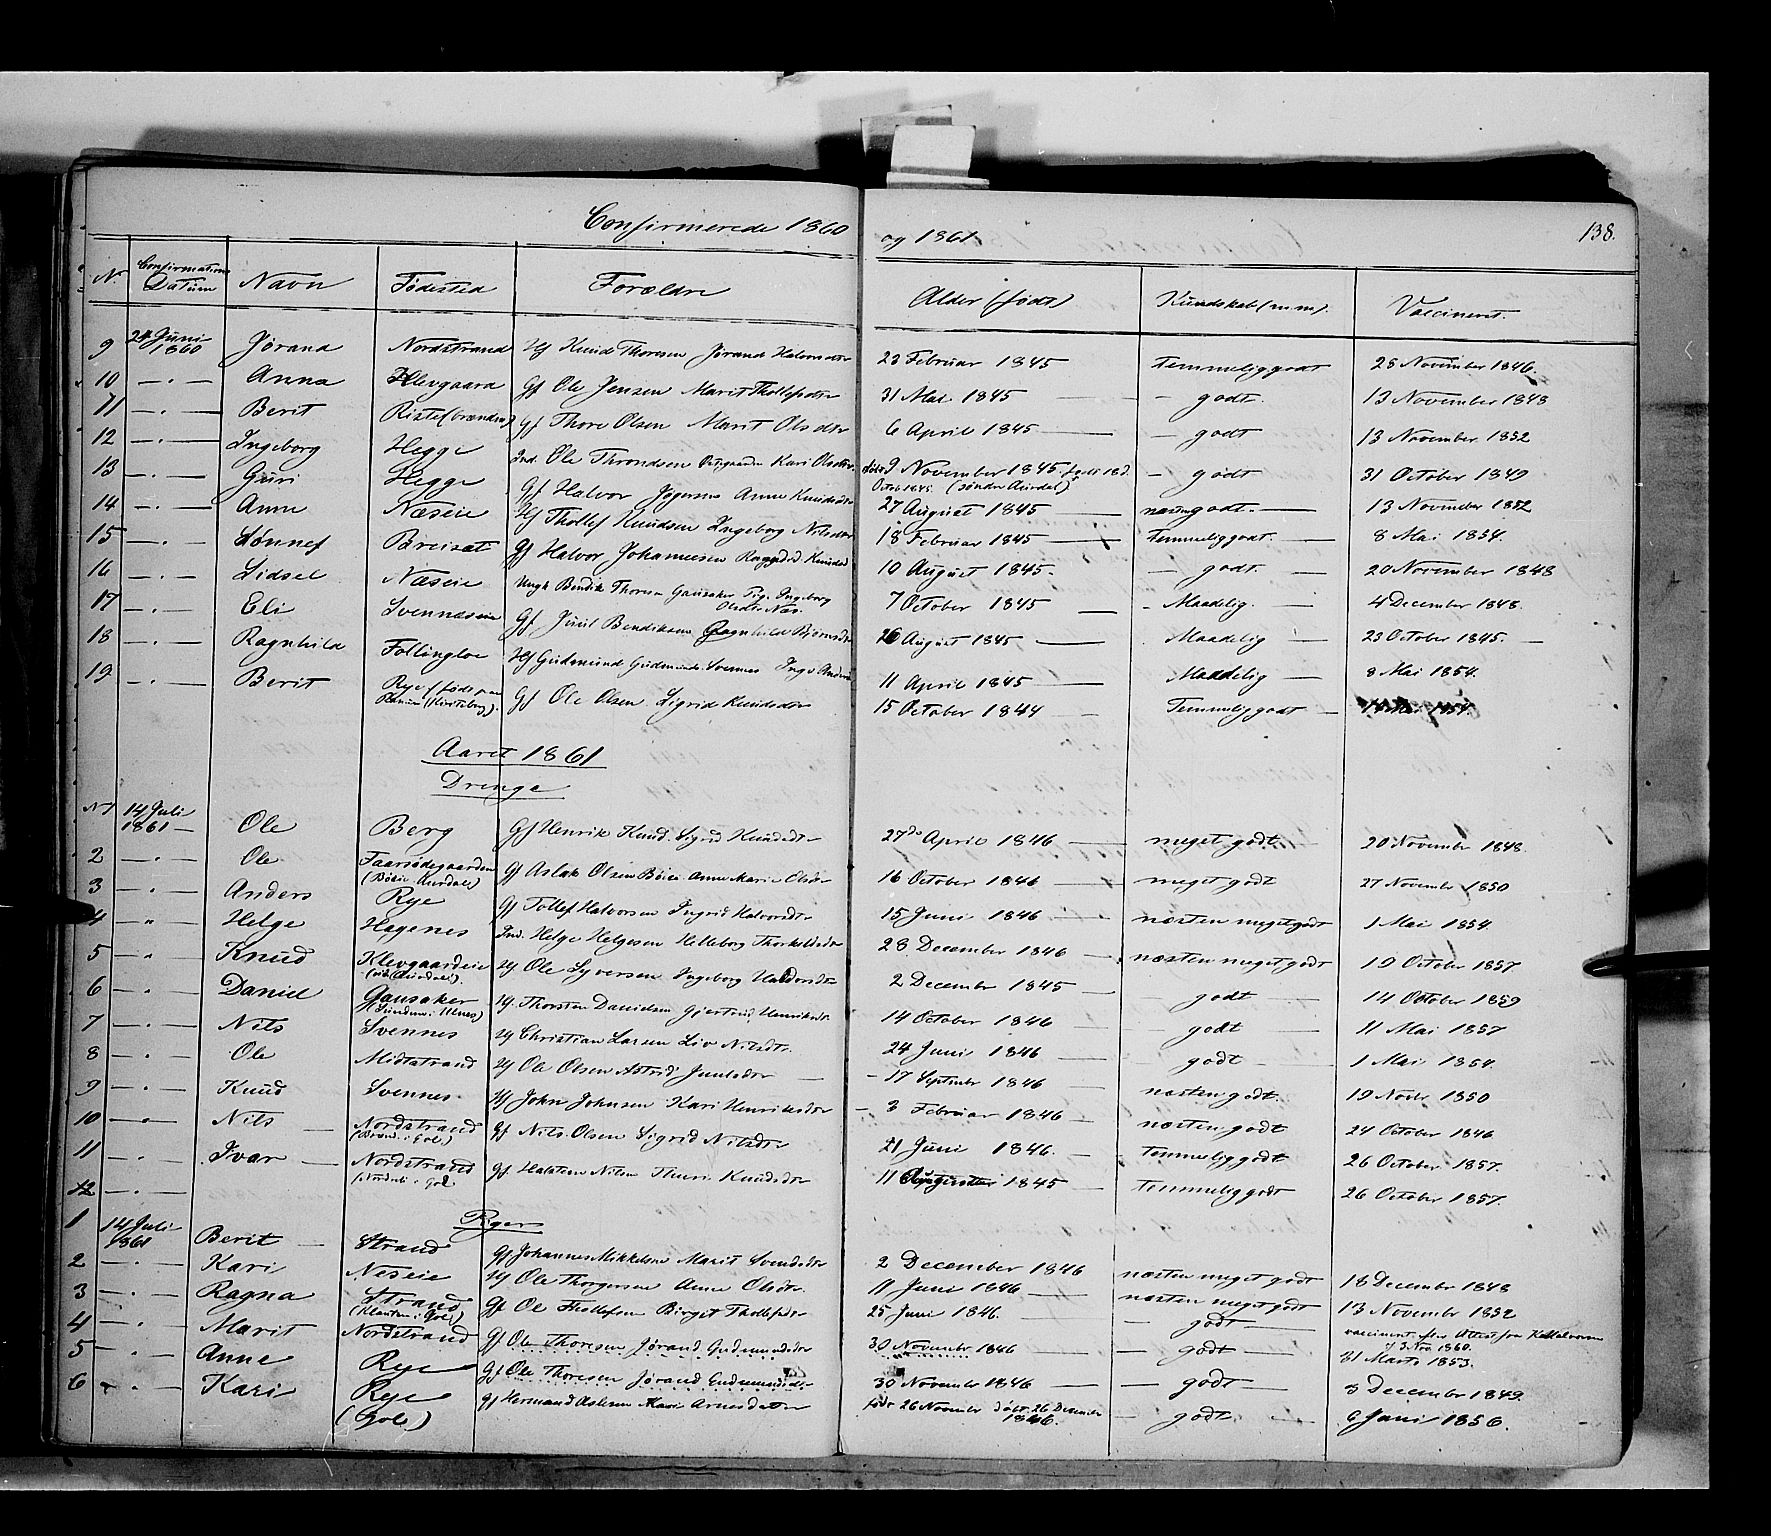 Confirmerede 1860 og 1861 138.
N. Confirmations Datum Navn Fødested Forældre Alder (født) Kundskab (m.m). Vaccineret.
9 24 Juni 1860 Jørand Nordstrand Hf Knud Thoresen Jørand Halvorsdtr 23 Februar 1845 temmelig godt 25 November 1846.
10 — " — Anna Klevgaard Gf Ole Jensen Marit Thollefsdtr 31 Mai 1845 — godt. 13 November 1848
11 — " — Berit Riste (brænden) Gf Thore Olsen Marit Olsdtr 6 April 1845 — godt 13 November 1852
12 — " — Ingeborg Hegge Ind. Ole Throndsen Kari Olsdtr døbt 9 November 1845. født 18 d. — godt 31 October 1849
Octob 1845. (søndre Aurdal)
13 — " — Guri Hegge Gf Halvor Anne Knudsdtr 27 August 1845 næsten godt. 13 November 1852
14 — " — Anne Næseie Hf Thollef Knudsen Ingeborg Nilsdtr 18 Februar 1845 Temmelig godt. 8 Mai 1854.
15 — " — Lønnef Breisæt Gf Halvor Johannesen Knudsd 10 August 1845. — godt. 20 November 1848
16 — " — Sidsel Næseie Ungk Bendik Thoresen Gausaker Pig. Ingeborg 7 October 1845 — Maadelig. 4 December 1848.
Olsdtr Næs.
17 — " — Eli Svennæseie Gf Juul Bendiksen Ragnhild Bjørnsdtr 26 August 1845 Maadelig 23 October 1845.
18 — " — Ragnhild Follingloe Hf Gudmund Gudmunds. Svennes Inge 11 April 1845 Maadelig 8 Mai 1854.
19 — " — Berit Rye (født paa Gf Ole Olsen Sigrid Knudsdtr 15 October 1844 Temmelig godt
Aaret 1861
Drenge
N 1 14 Juli 1861 — Ole Berg Gf Henrik Knud. Sigrid Knudsdtr 27de April 1846 meget godt 20 November 1848.
2 — " — Ole Faarsødegaarden Gf Aslak Olsen Böien Anne Marie Olsdtr 16 October 1846 meget godt 27 November 1850
(Böeie Aurdal)
3 — " — Anders Rye Gf Tollef Halvorsen Ingrid Halvorsdtr 15 Juni 1846 næsten meget godt 1 Mai 1854.
4 — " Helge Hagenes Ind. Helge Helgesen Helleborg Thorkildsdtr 28 December 1846 næsten meget godt 19 October 1857.
5 — " — Knud Klevgaardeie Hf Ole Syversen Ingeborg Haldorsdtr 2 December 1845 godt 14 October 1859
6 — " — Daniel Gausaker Hf. Thorsten Danielsen Gjertrud Henriksdtr 14 October 1846 — godt 11 Mai 1857
(Sundeun i Ulnes)
7 — " — Nils Svennes Hf Christian Larsen Liv Nilsdtr. 24 Juni 1846 godt 1 Mai 1854.
8 — " — Ole Midtstrand Hf Ole Olsen Astrid Juulsdtr 17 September 1846 næsten godt. 19 Novbr 1850
9 — " — Knud Svennes Hf John Johnsen Kari Henriksdtr 3 Februar 1846 næsten godt 24 October 1846
10 — " — Nils Nordstrand Gf Nils Olsen Sigrid Nilsdtr 21 Juni 1846. Temmelig godt 26 October 1857.
11 — " — Ivar Nordstrand Gf Halsten Nilsen Thuri Knudsdtr 11 1845 temmelig godt 26 October 1857.
12 — " —
Piger
1 14 Juli 1861 Berit Strand Gf Johannes Mikkelsen Marit Svendsdtr 2 December 1846 næsten meget godt 18 December 1848
2 — " — Kari Neseie Hf Ole Thorgersen Anne Olsdtr. 11 Juni 1846 næsten meget godt 13 November 1852
3 — " — Ragna Strand Gf Ole Thollefsen Birgit Thollefsdtr 25 Juni 1846. — godt vaccineret efter Attest fra K. Halvorsen
(Gol) 3 Nov 1860.
4 — " — Marit Nordstrand Gf Ole Thoresen Jørand Gudmundsdtr 30 November 1846 — godt 31 Marts 1853.
5 — " — Anne Rye Gf Ole Thoresen Jørand Gudmundsdtr 30 November 1846 — godt 3 December 1849.
6 — " — Kari Rye Gf Hermand Aslesen Kari Arnesdatter født 26 November døbt 26 December — godt 6 Juni 1856.
(Gol) 1846.